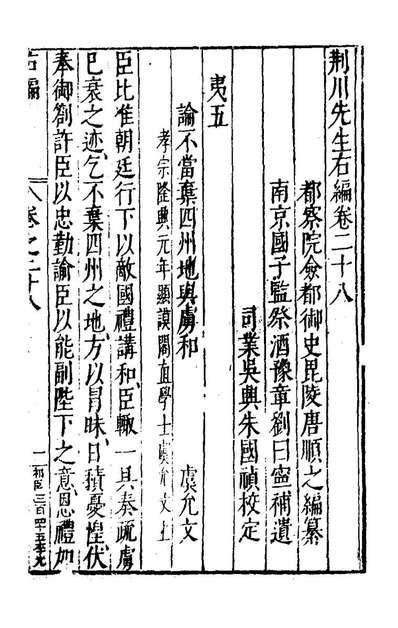 荆川先生右編卷二十八
都察院僉都御史毘陵唐順之編纂
南京國子監祭酒豫章劉曰寧補遺
司業吳興朱國禎校定
夷五
論不當棄四州地與虜和 虞允文
孝宗隆興元年顯謨閣直學士虞允文上
臣比准朝廷行下以敵國禮講和臣輙一具奏疏虜
已衰之迹乞不棄四州之地方以冒昧日積憂惶伏
奉御劄許臣以忠勤諭臣以能副陛下之意恩禮如
右編 卷之二十八 一